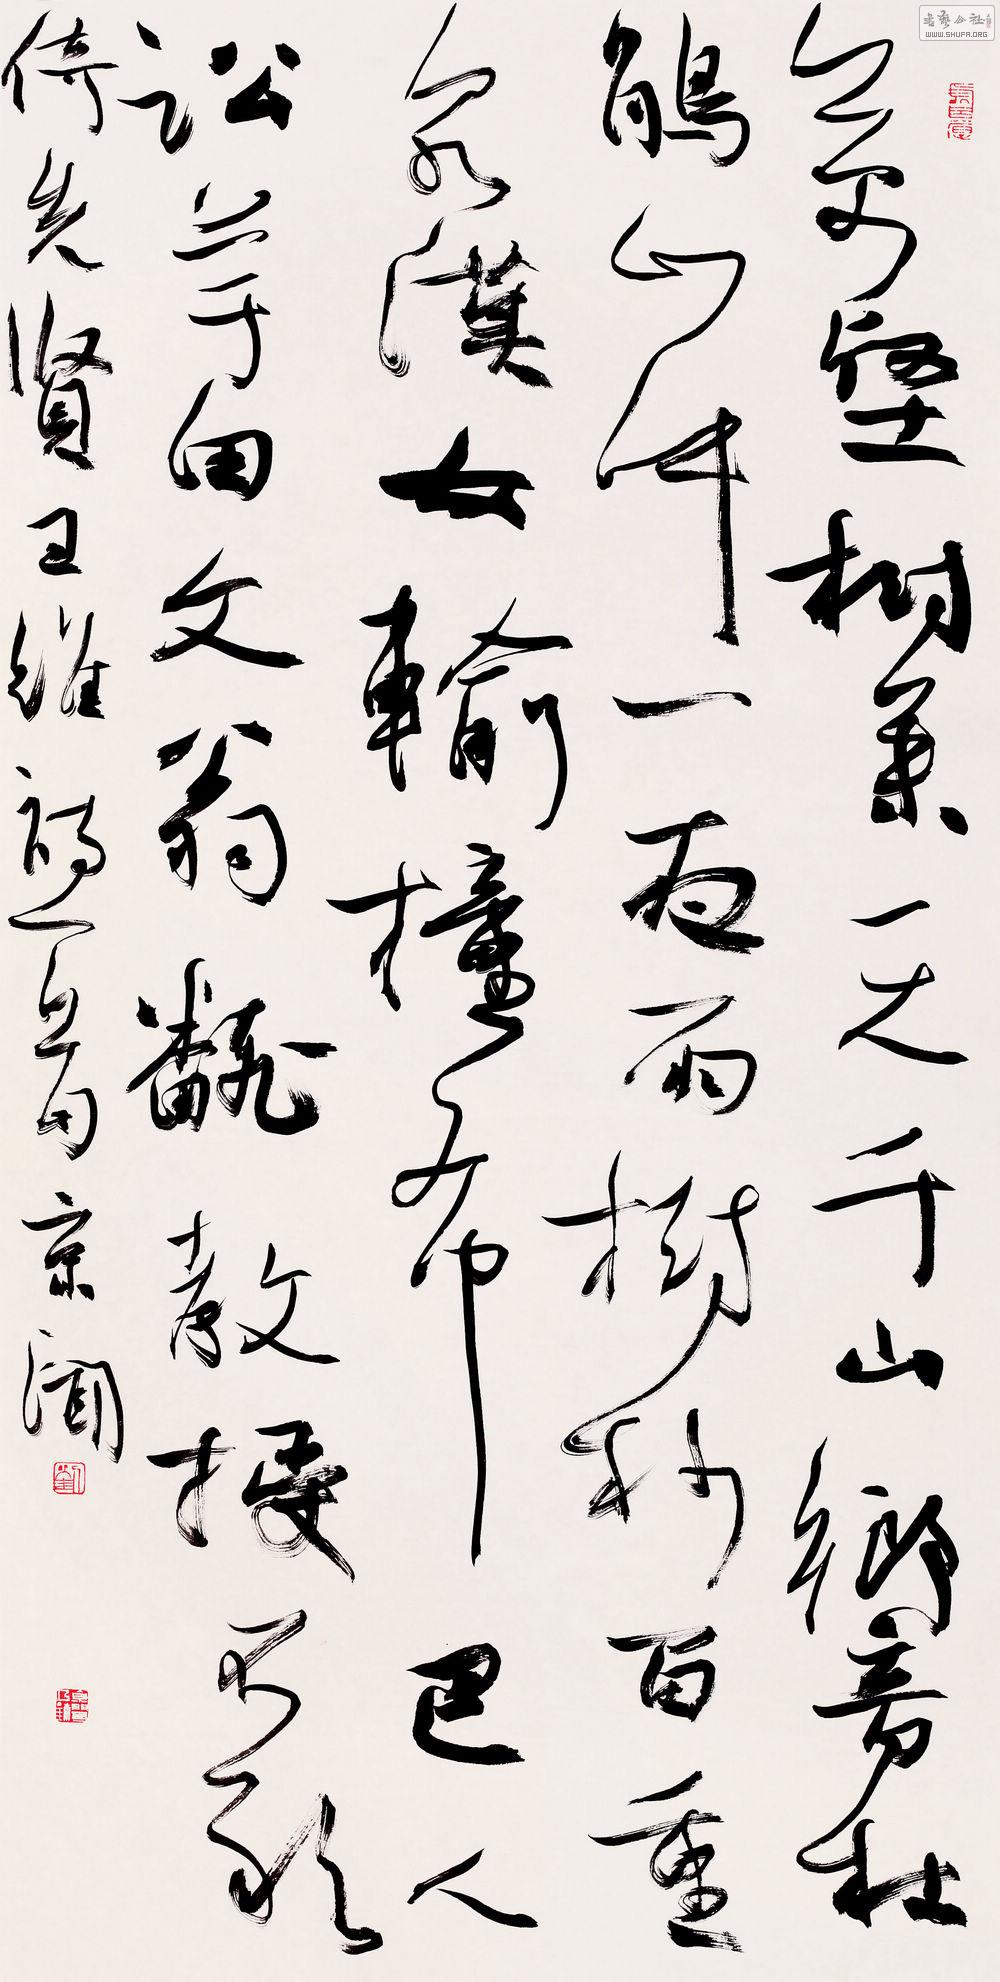 萬壑樹參天千山響杜
鵑山中一夜雨樹杪百重
泉漢女輸橦布巴人
訟芋田文翁飜教授不敢
倚先賢王維詩一首京聞
書藝公社
WWW.SHUFA.ORG